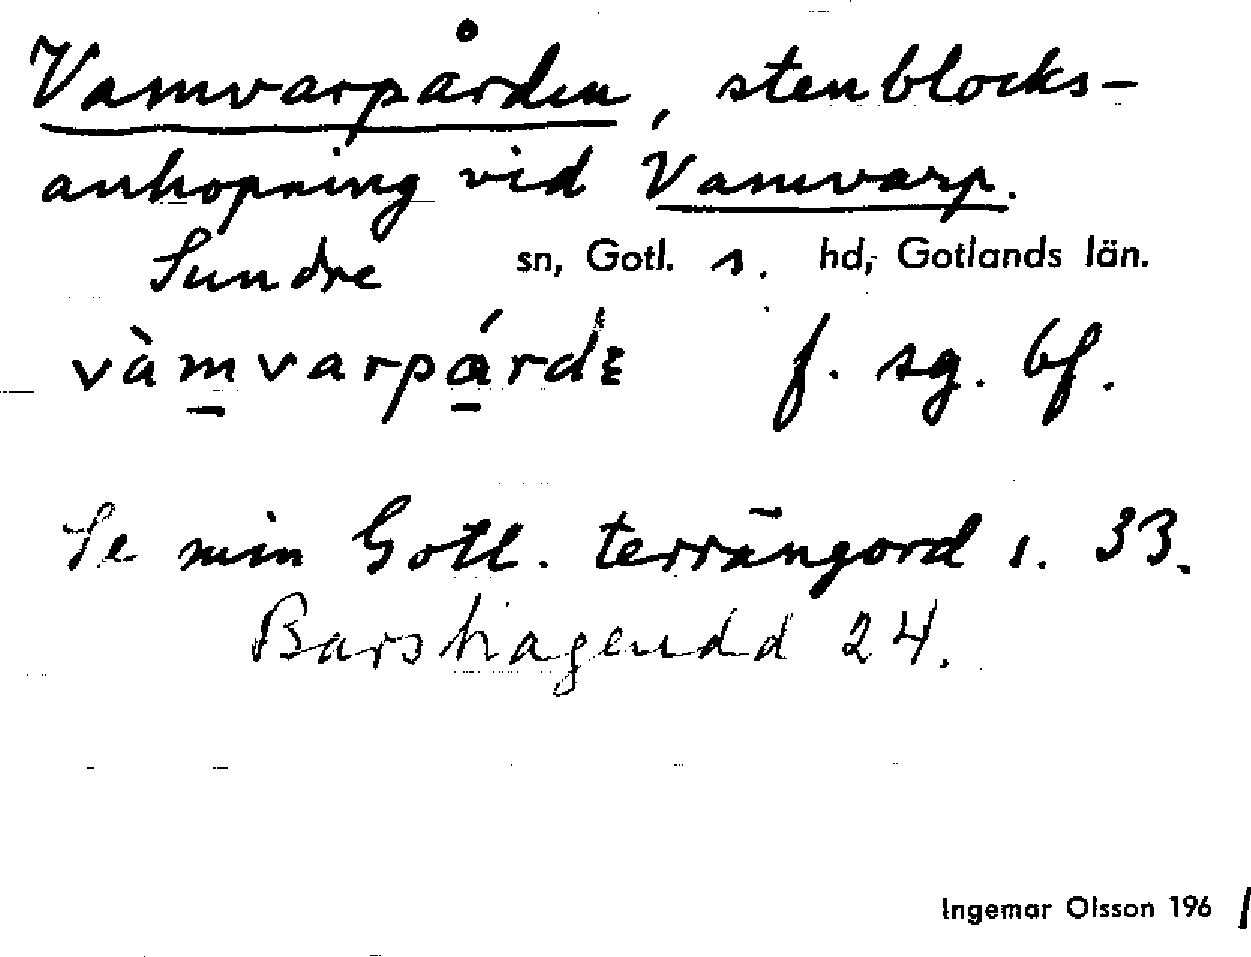 Vamvarpården, stenblocks-
anhopning vid Vamvarp.
Sundre sn, Gotl. s. hd, Gotlands län.
vàmvarpárdε f. sg. bf.
Se min Gotl. terrängord s. 33.
Barshageudd 24.
Ingemar Olsson 1961